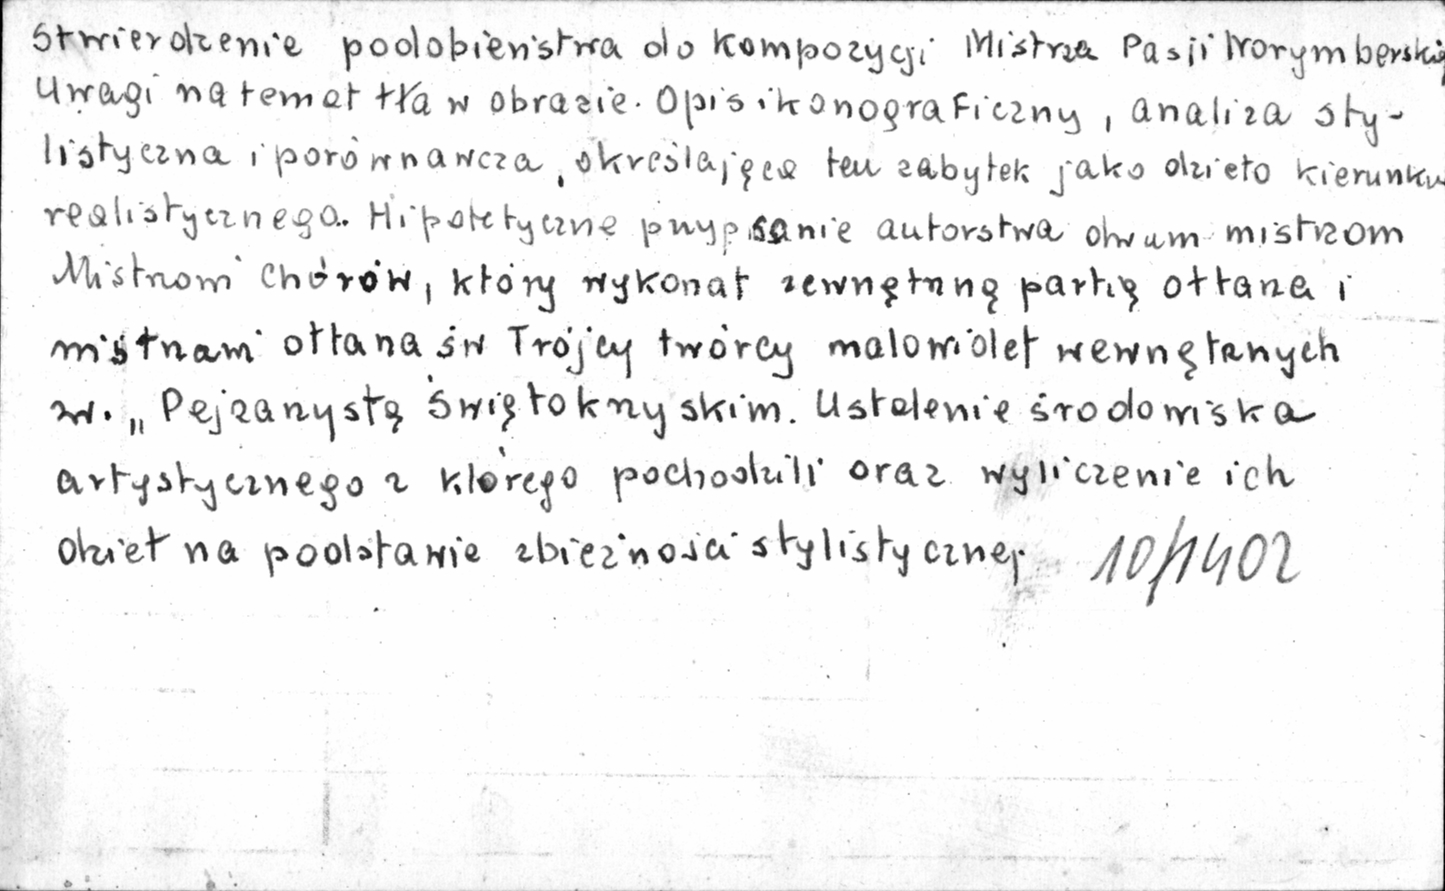 Stwierdzenie podobieństwa do kompozycji Mistrza Pasji Norymberskiej
Uwagi na temat tła w obrazie. Opis ikonograficzny, analiza sty-
listyczna i porównawcza, określające ten zabytek jako dzieło kierunku
realistycznego. Hipotetyczne przypisanie autorstwa dwum mistrzom
Mistrzowi Chórów, który wykonał zewnętrzną partię ołtarza i
mistrzowi ołtarza św Trójcy twórcy malowideł wewnętrznych
zw. „Pejzarzystą Świętokrzyskim. Ustalenie środowiska
artystycznego z którego pochodzili oraz wyliczenie ich
dzieł na podstawie zbieżności stylistycznej 10/1402